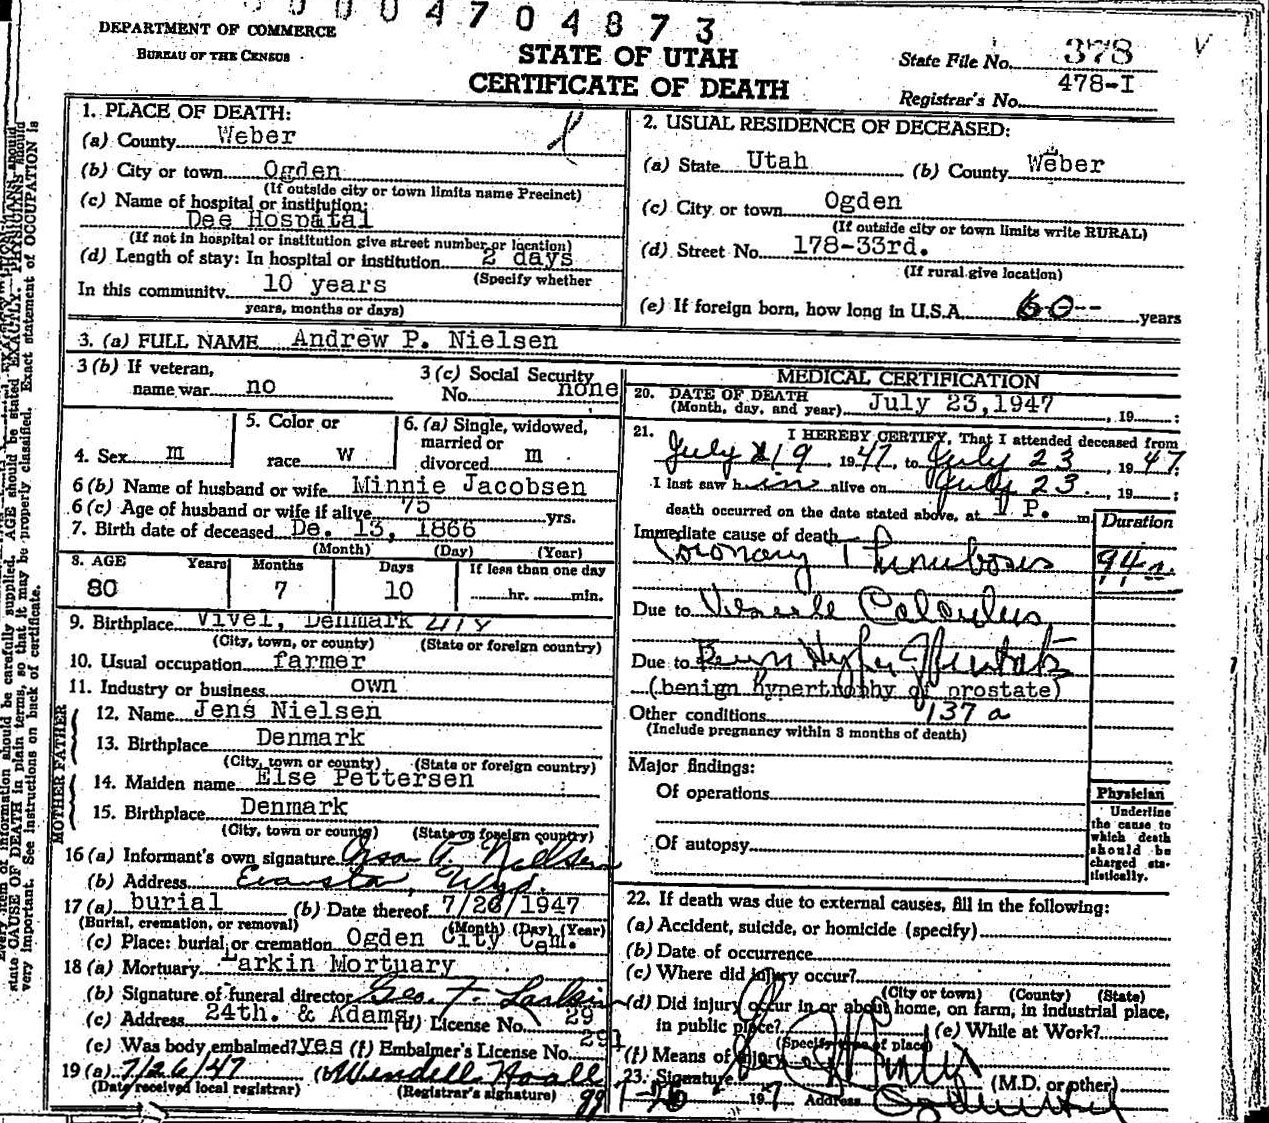 0004704873
DEPARTMENT OF COMMERCE
BUREAU OF THE CENSUS
STATE OF UTAH
CERTIFICATE OF DEATH
State File No. 378
478-I
Registrar's No.
1. PLACE OF DEATH:
(a) County Weber
(b) City or town Ogden
(If outside city or town limits name Precinct)
(c) Name of hospital or institution:
Dee Hospatal
(If not in hospital or institution give street number or location)
(d) Length of stay: In hospital or institution 2 days
(Specify whether
In this community 10 years
years, months or days)
2. USUAL RESIDENCE OF DECEASED:
(a) State Utah (b) County Weber
(c) City or town Ogden
(If outside city or town limits write RURAL)
(d) Street No. 178-33rd.
(If rural give location)
(e) If foreign born, how long in U.S.A. 60-- years
3. (a) FULL NAME Andrew P. Nielsen
3 (b) If veteran,
name war no
3 (c) Social Security
No. none
4. Sex m
5. Color or
race w
6. (a) Single, widowed,
married or
divorced m
6 (b) Name of husband or wife Minnie Jacobsen
6 (c) Age of husband or wife if alive 75 yrs.
7. Birth date of deceased De. 13, 1866
(Month) (Day) (Year)
8. AGE Years Months Days If less than one day
80 7 10 hr. min.
9. Birthplace Vivel, Denmark
(City, town, or county) (State or foreign country)
10. Usual occupation farmer
11. Industry or business own
FATHER
12. Name Jens Nielsen
13. Birthplace Denmark
(City, town or county) (State or foreign country)
MOTHER
14. Maiden name Else Pettersen
15. Birthplace Denmark
(City, town or county) (State or foreign country)
16 (a) Informant's own signature P. Nielsen
(b) Address Evanston, Wyo.
17 (a) burial (b) Date thereof 7/26/1947
(Burial, cremation, or removal) (Month) (Day) (Year)
(c) Place: burial or cremation Ogden City Cem.
18 (a) Mortuary Larkin Mortuary
(b) Signature of funeral director Geo. F. Larkin
(c) Address 24th. & Adams (d) License No. 29
(e) Was body embalmed? yes (f) Embalmer's License No. 291
19 (a) 7/26/47 (b) Wendell Noall
(Date received local registrar) (Registrar's signature)
MEDICAL CERTIFICATION
20. DATE OF DEATH
(Month, day, and year) July 23,1947 , 19 :
21. I HEREBY CERTIFY, That I attended deceased from
July 19 , 1947, to July 23 , 1947;
I last saw him alive on July 23 , 19 ;
death occurred on the date stated above, at 1 P. m
Duration
Immediate cause of death
Coronary Thrombosis
Due to Calculus
Due to Benign Hyper Prostate
(benign hypertrophy of prostate)
Other conditions 137 a
(Include pregnancy within 3 months of death)
Major findings:
Of operations
Of autopsy
Physician
Underline
the cause to
which death
should be
charged sta-
tistically.
22. If death was due to external causes, fill in the following:
(a) Accident, suicide, or homicide (specify)
(b) Date of occurrence
(c) Where did injury occur?
(City or town) (County) (State)
(d) Did injury occur in or about home, on farm, in industrial place,
in public place? (e) While at Work?
(Specify type of place)
(f) Means of injury
23. Signature (M.D. or other)
19 7 Address Ogden Utah